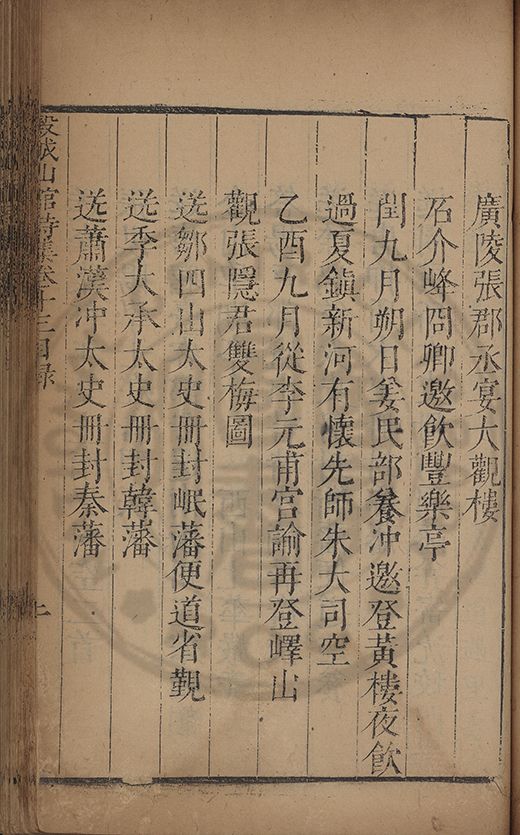 廣陵張郡丞宴大觀樓
石介峰冏卿邀飲豐樂亭
閏九月朔日姜民部養冲邀登黃樓夜飲
過夏鎮新河有懷先師朱大司空
乙酉九月從李元甫宮諭再登嶧山
觀張隱君雙梅圖
送鄒四山太史冊封岷藩便道省覲
送季大承太史冊封韓藩
送蕭漢冲太史冊封秦藩
榖城山館詩集卷十三目錄